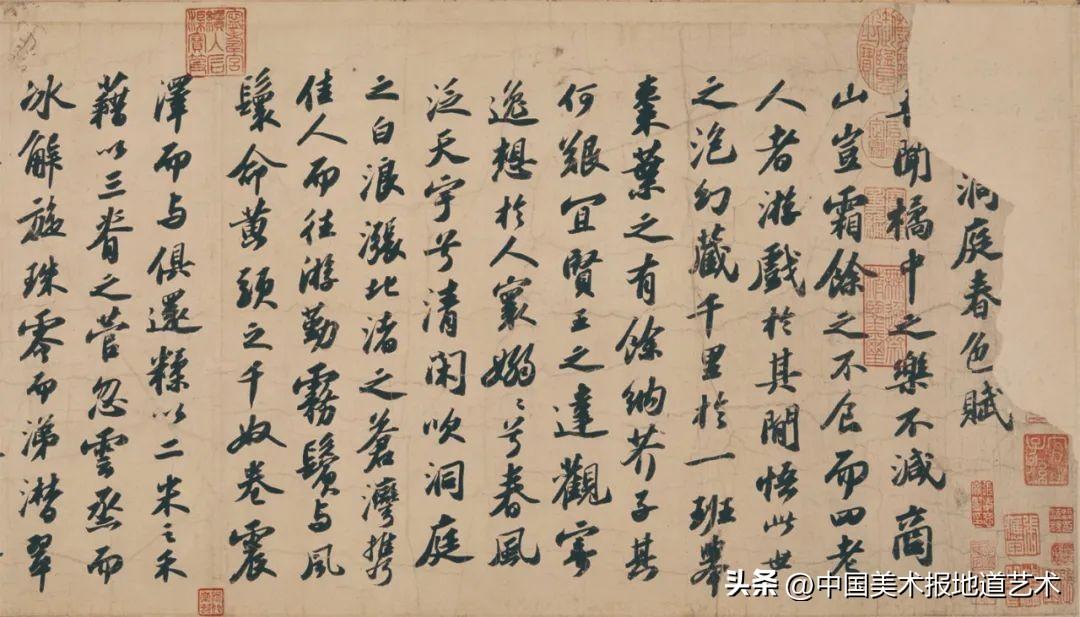 洞庭春色賦
聞橘中之樂不減商
山豈霜餘之不食而四老
人者游戲於其間悟此世
之泡幻藏千里於一班舉
棗葉之有餘納芥子其
何艱宜賢王之達觀寄
逸想於人寰嫋〻兮春風
泛天宇兮清閑吹洞庭
之白浪漲北渚之蒼灣携
佳人而往游勤霧鬢与風
鬟命黃頭之千奴卷震
澤而与俱還糅以二米之禾
藉以三脊之菅忽雲烝而
冰解旋珠零而涕潸翠
头条 @中国美术报地道艺术